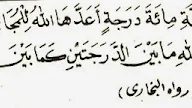 ـةِ مِائَةَ دَرَجَةٍ أَعَدَّهَا اللهُ لِلْمُجَا
للهِ مَا بَيْنَ الدَّرَجَتَيْنِ كَمَا بَيْنَ
رواه البخارى)